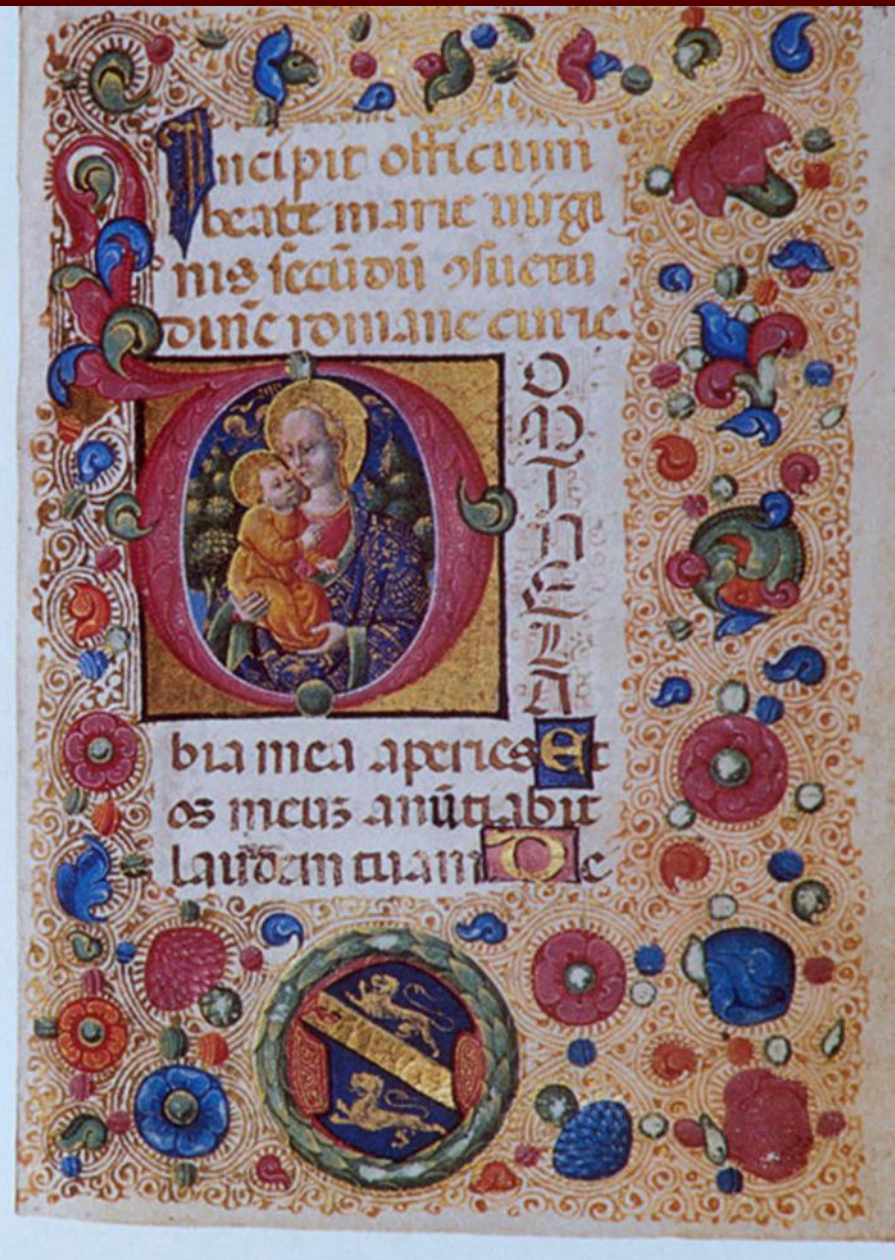 Incipit officium
beate marie uirgi
nis secūdū ꝯsuetu
dinē romane curie.
D
O
M
I
N
E
L
A
bia mea aperies Et
os meuz anūtiabit
laudem tuam De